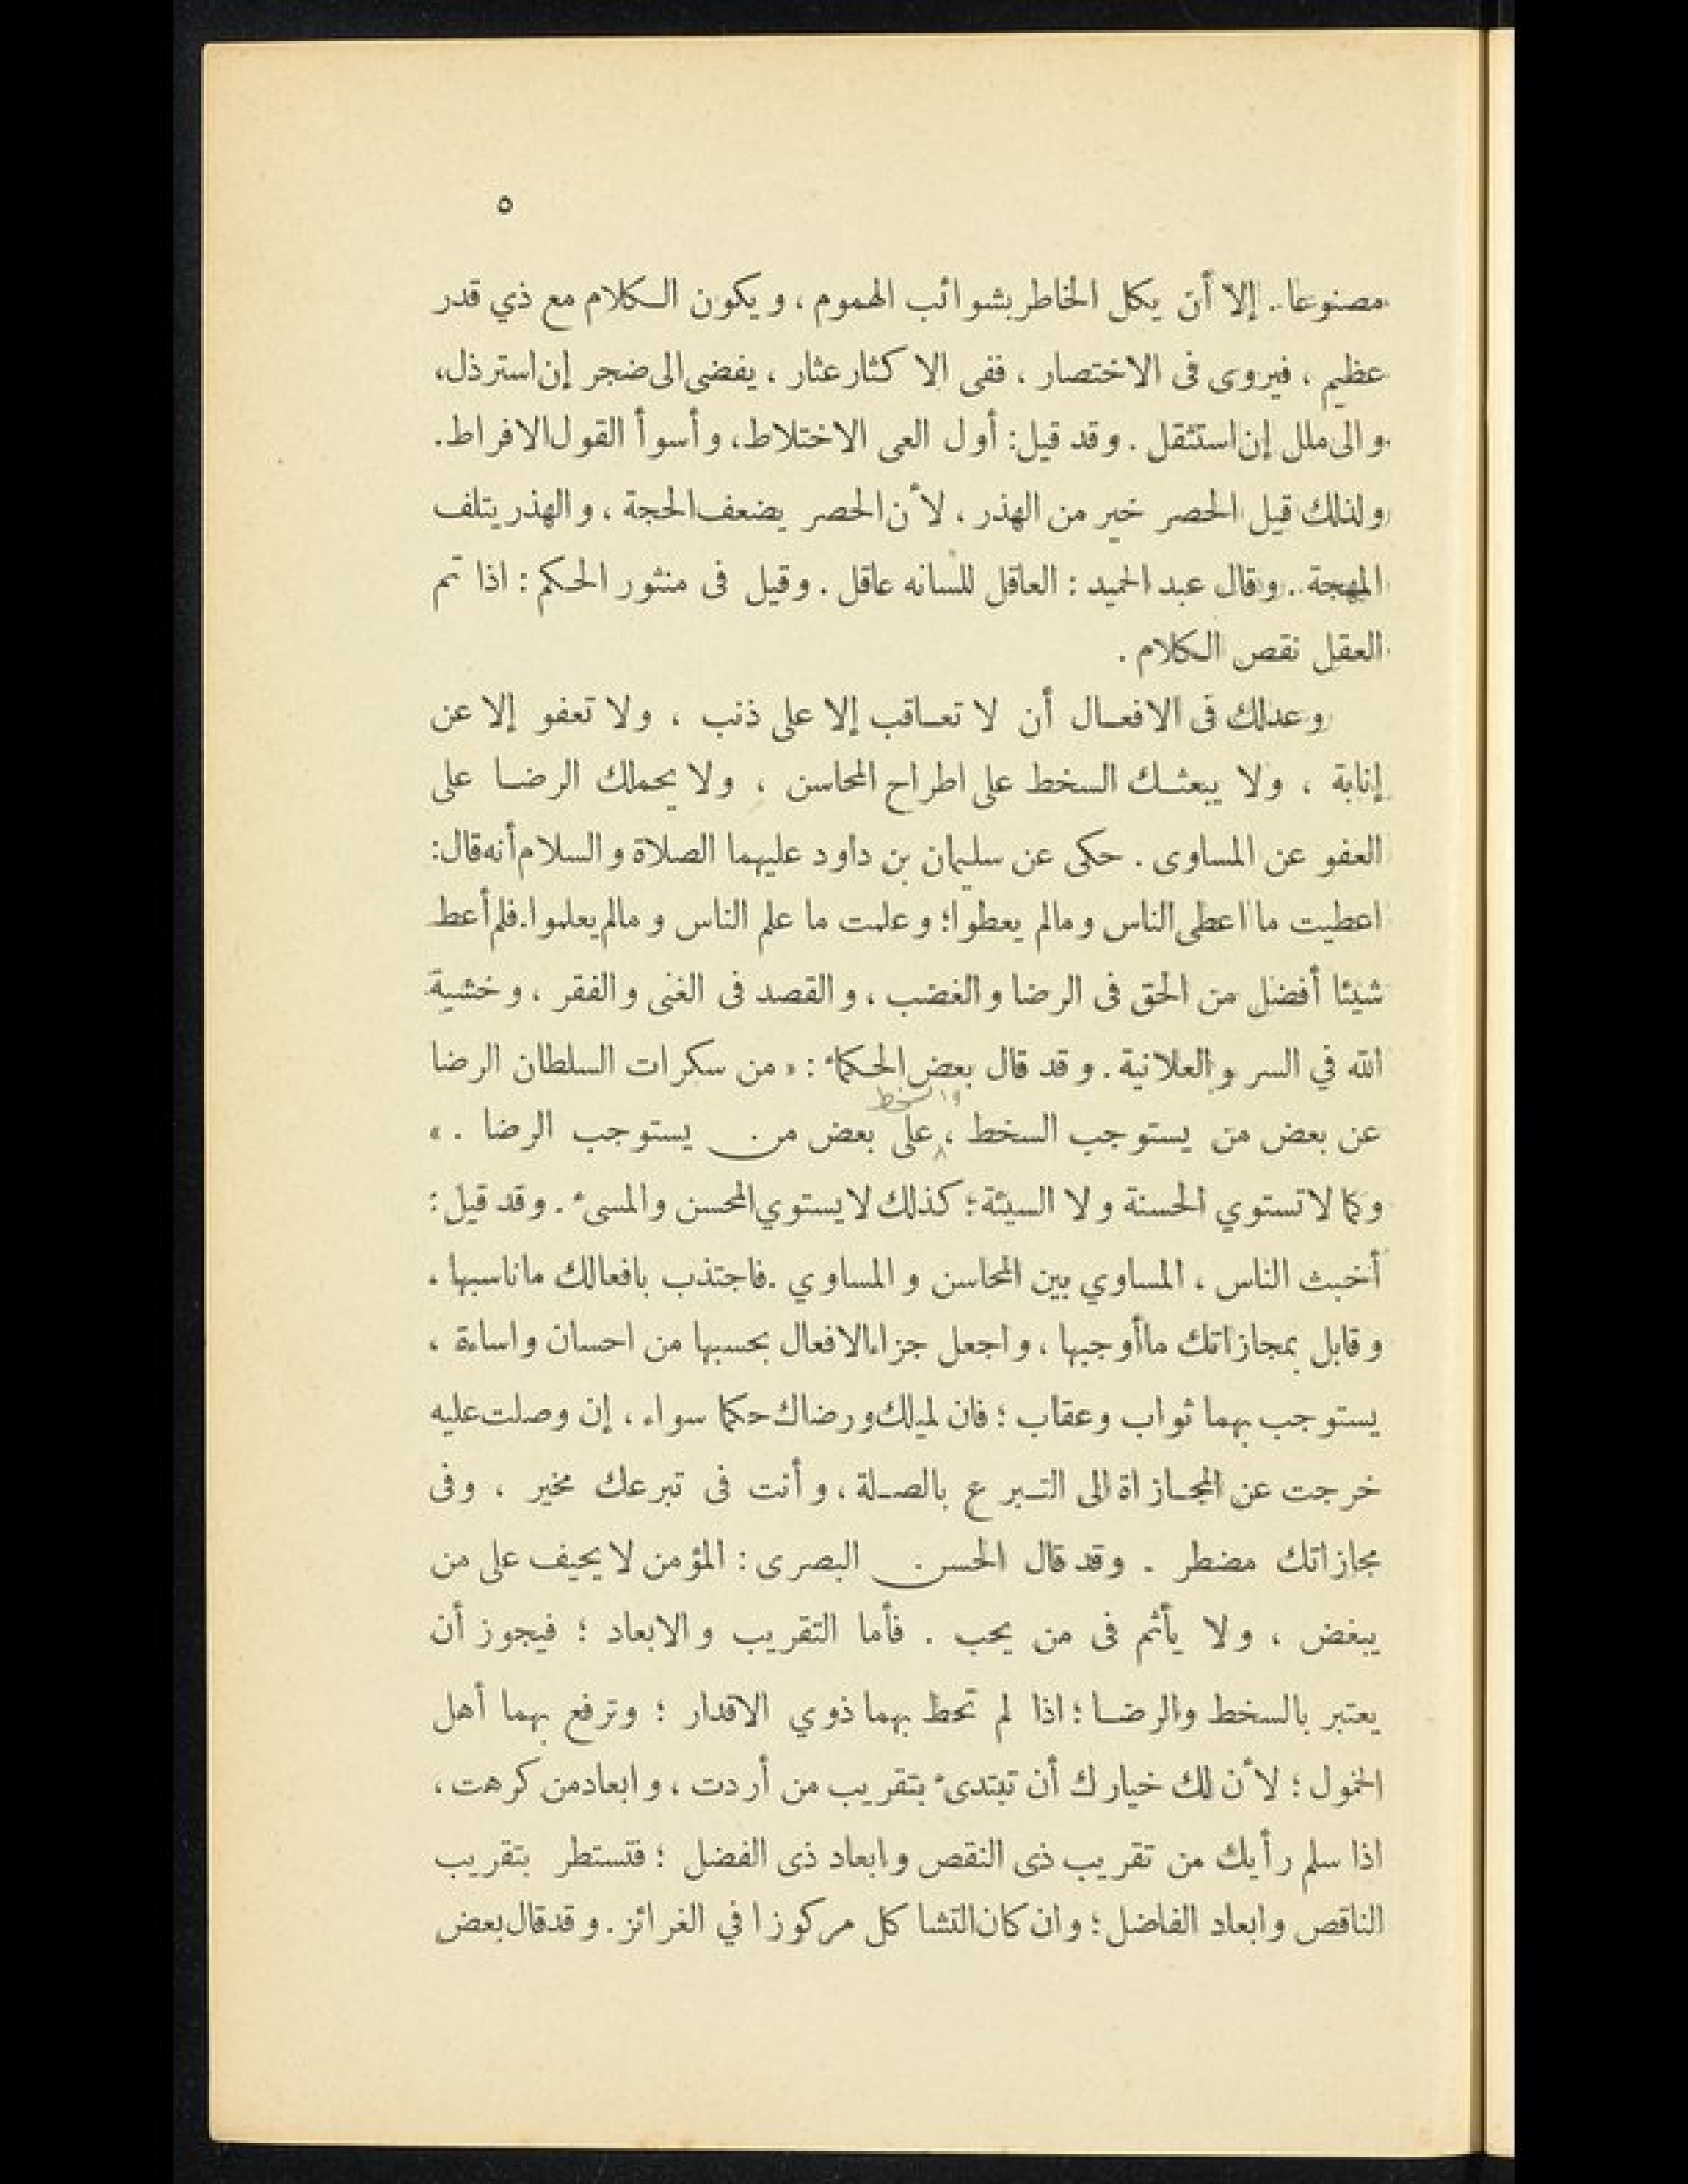 ٥
مصنوعا. إلا أن يكل الخاطر بشوائب الهموم ، ويكون الكلام مع ذي قدر
عظيم ، فيروى فى الاختصار ، ففى الاكثار عثار ، يفضى الى ضجر إن استرذل،
والى ملل إن استثقل . وقد قيل: أول العى الاختلاط، وأسوأ القول الافراط.
ولذلك قيل الحصر خير من الهذر ، لأن الحصر يضعف الحجة ، والهذر يتلف
المهجة . وقال عبد الحميد : العاقل للسانه عاقل . وقيل فى منثور الحكم : اذا تم
العقل نقص الكلام .
وعدلك فى الافعال أن لا تعاقب إلا على ذنب ، ولا تعفو إلا عن
إنابة ، ولا يبعثك السخط على اطراح المحاسن ، ولا يحملك الرضا على
العفو عن المساوى . حكى عن سليمان بن داود عليهما الصلاة والسلام أنه قال:
اعطيت ما اعطى الناس ومالم يعطوا؛ وعلمت ما علم الناس ومالم يعلموا. فلم أعط
شيئا أفضل من الحق فى الرضا والغضب ، والقصد فى الغنى والفقر ، وخشية
الله في السر والعلانية . وقد قال بعض الحكماء : « من سكرات السلطان الرضا
والسخط
عن بعض من يستوجب السخط ، على بعض من يستوجب الرضا . »
وكما لا تستوي الحسنة ولا السيئة ؛ كذلك لا يستوي المحسن والمسىء . وقد قيل :
أخبث الناس ، المساوي بين المحاسن والمساوي . فاجتذب بافعالك ماناسبها .
وقابل بمجازاتك ماأوجبها ، واجعل جزاء الافعال بحسبها من احسان واساءة ،
يستوجب بهما ثواب وعقاب ؛ فان لميلك ورضاك حكما سواء ، إن وصلت عليه
خرجت عن المجازاة الى التبرع بالصلة ، وأنت فى تبرعك مخير ، وفى
مجازاتك مضطر . وقد قال الحسن البصرى : المؤمن لا يحيف على من
يبغض ، ولا يأثم فى من يحب . فأما التقريب والابعاد ؛ فيجوز أن
يعتبر بالسخط والرضا ؛ اذا لم تحط بهما ذوي الاقدار ؛ وترفع بهما أهل
الخمول ؛ لأن لك خيارك أن تبتدىء بتقريب من أردت ، وابعاد من كرهت ،
اذا سلم رأيك من تقريب ذى النقص وابعاد ذى الفضل ؛ فتستطر بتقريب
الناقص وابعاد الفاضل ؛ وان كان التشاكل مركوزا في الغرائز . وقد قال بعض